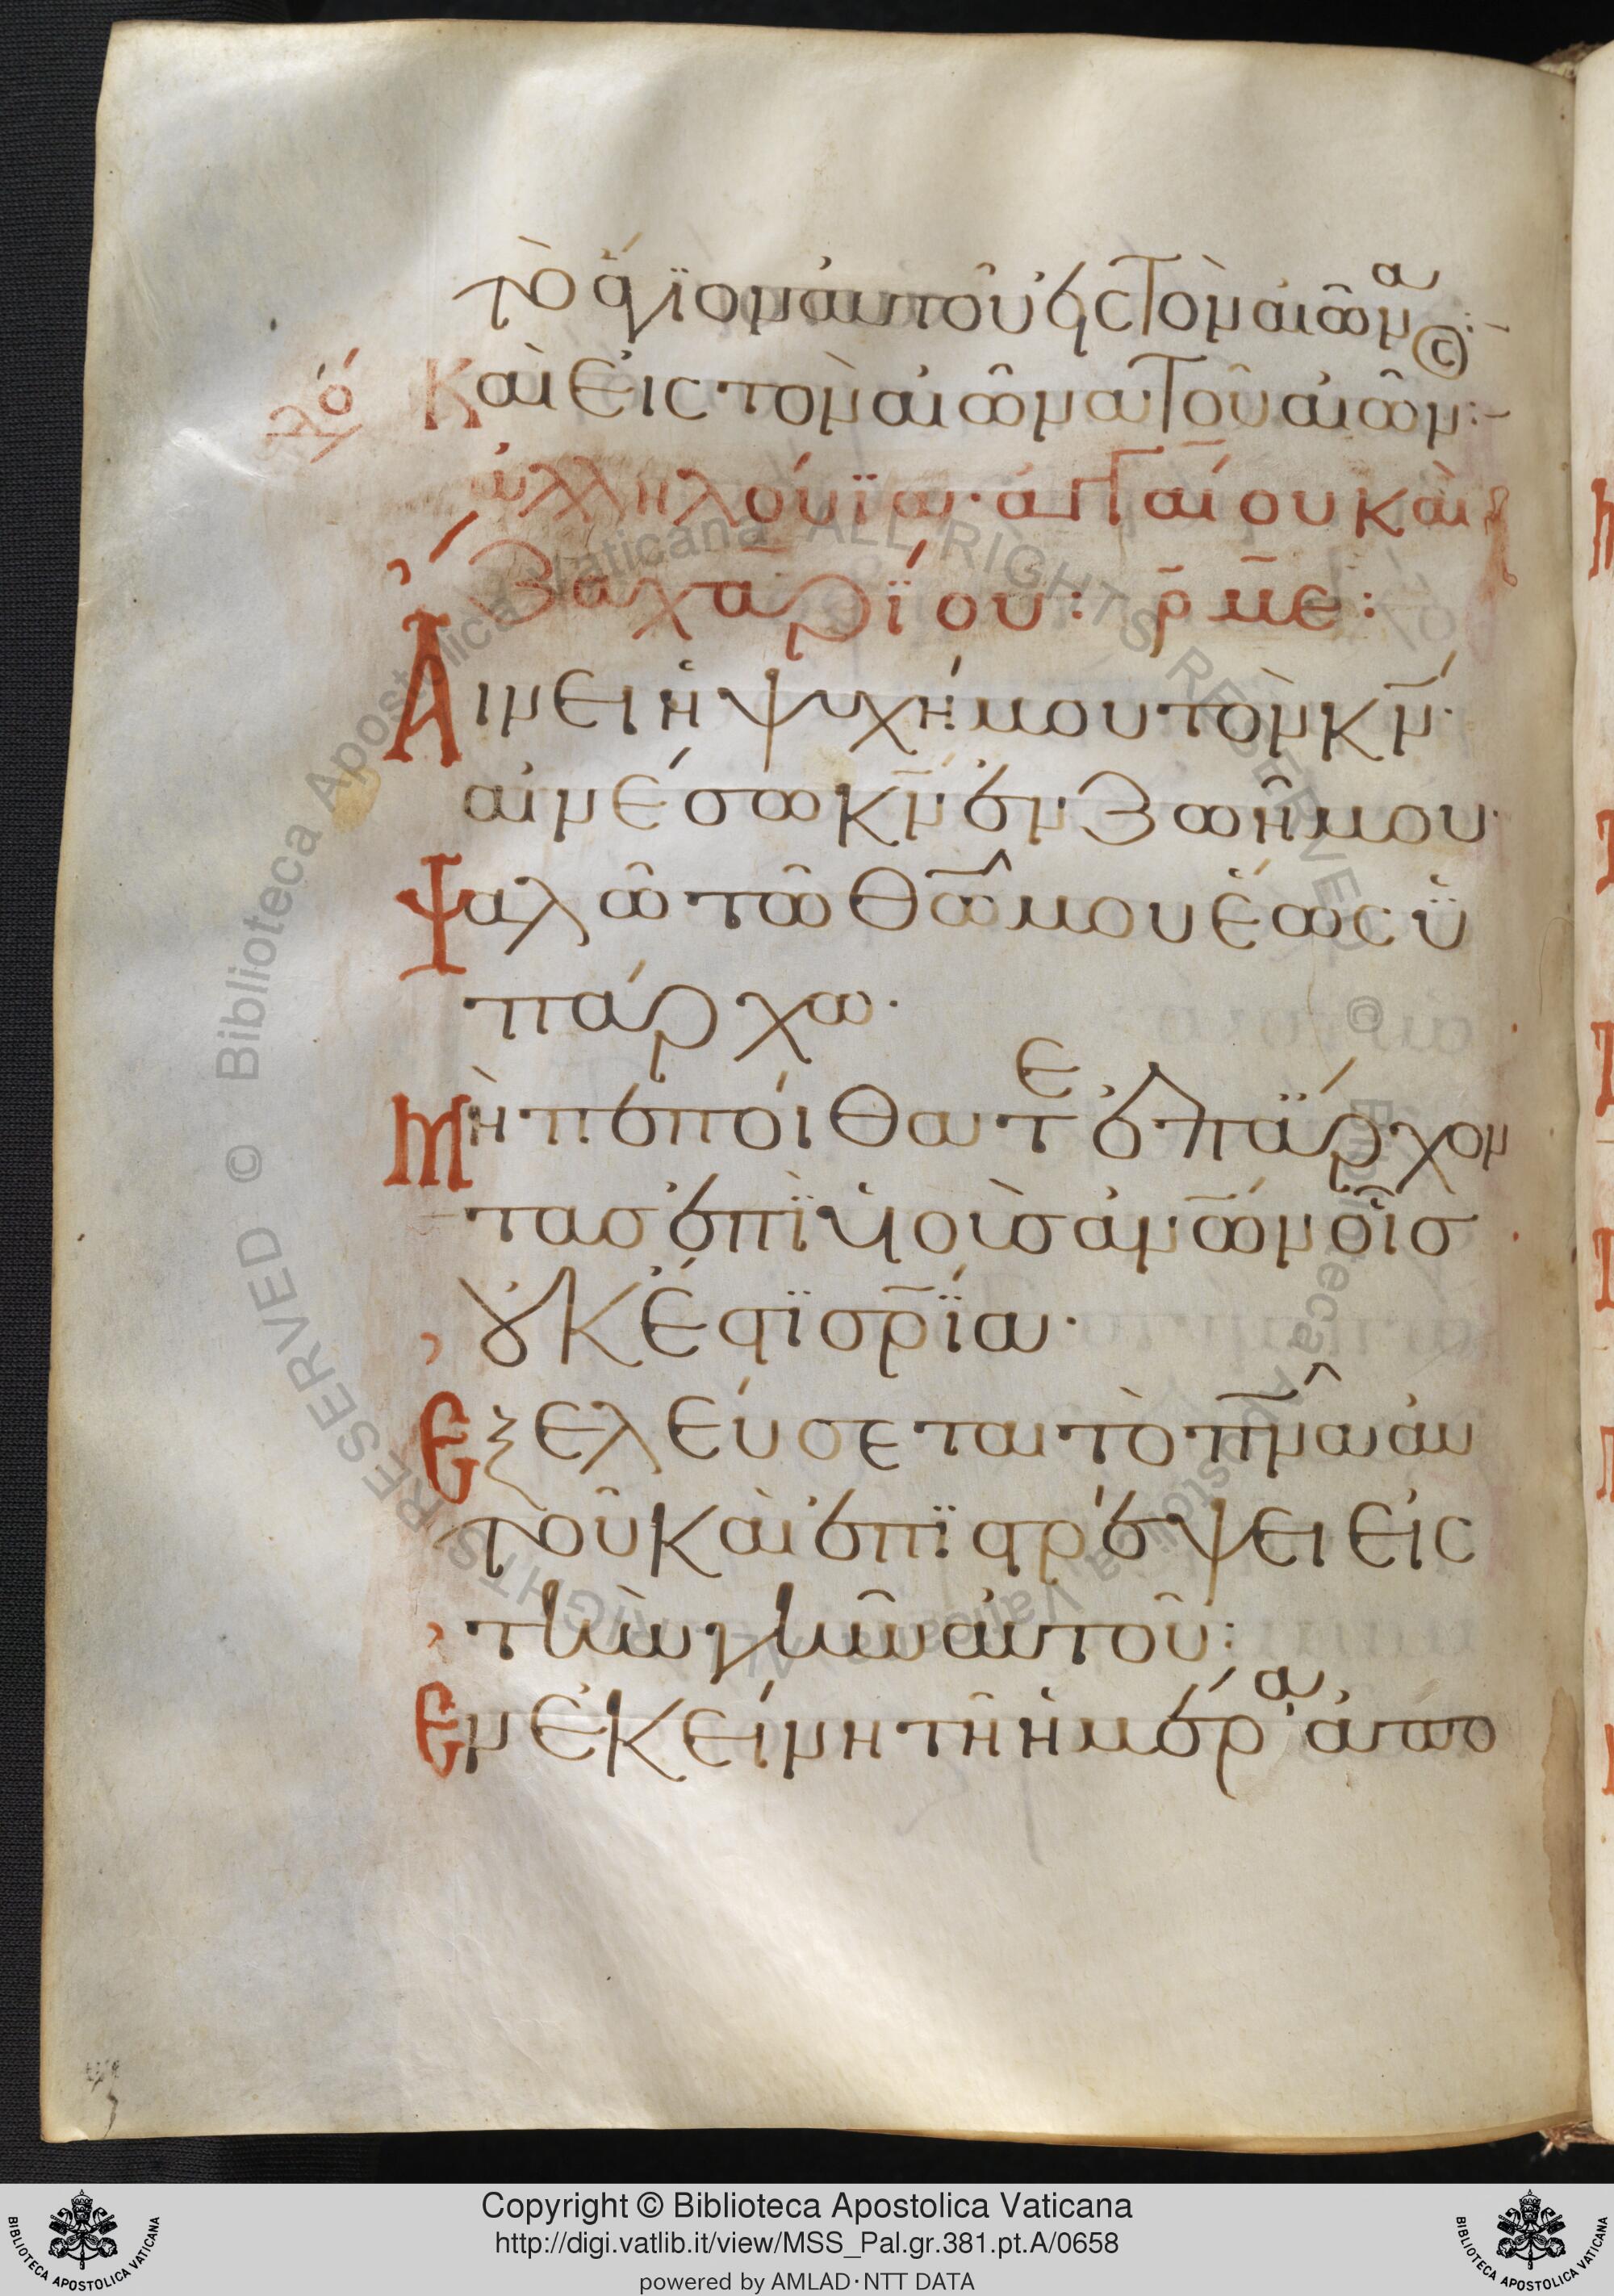 τὸ ἅγϊον αὐτοῦ εἰς τὸν αἰῶνα:-
λό Καὶ εἰς τὸν αἰῶνα τοῦ αἰῶν:-
ἀλληλούϊα· ἀγγαίου καὶ
Ζαχαρίου: ρ̄μ̄ε:
Αἴνει ἡ ψυχή μου τὸν κ̄ν̄·
αἰνέσω κ̄ν̄ ἐν ζωῆ μου·
Ψαλῶ τῶ θ̄ω̄ μου ἕως ὑ
πάρχω·
Μὴ πεποίθατε ἐπ ἄρχον
τασ ἐπῒ υἱοὺσ ἀν̄ω̄ν οἷσ
οὐκ ἔστϊ σρ̄ΐα·
Ἐξελεύσεται τὸ π̄ν̄ᾶ αὐ
τοῦ καὶ ἐπϊστρέψει εἰς
τὴν γῆν αὐτοῦ:
Ἐν ἐκείνη τῆ ἡμέρα ἀπο
Copyright © Biblioteca Apostolica Vaticana
http://digi.vatlib.it/view/MSS_Pal.gr.381.pt.A/0658
powered by AMLAD·NTT DATA
BIBLIOTECA APOSTOLICA VATICANA
BIBLIOTECA APOSTOLICA VATICANA
© Biblioteca Apostolica Vaticana ALL RIGHTS RESERVED © Biblioteca Apostolica Vaticana ALL RIGHTS RESERVED